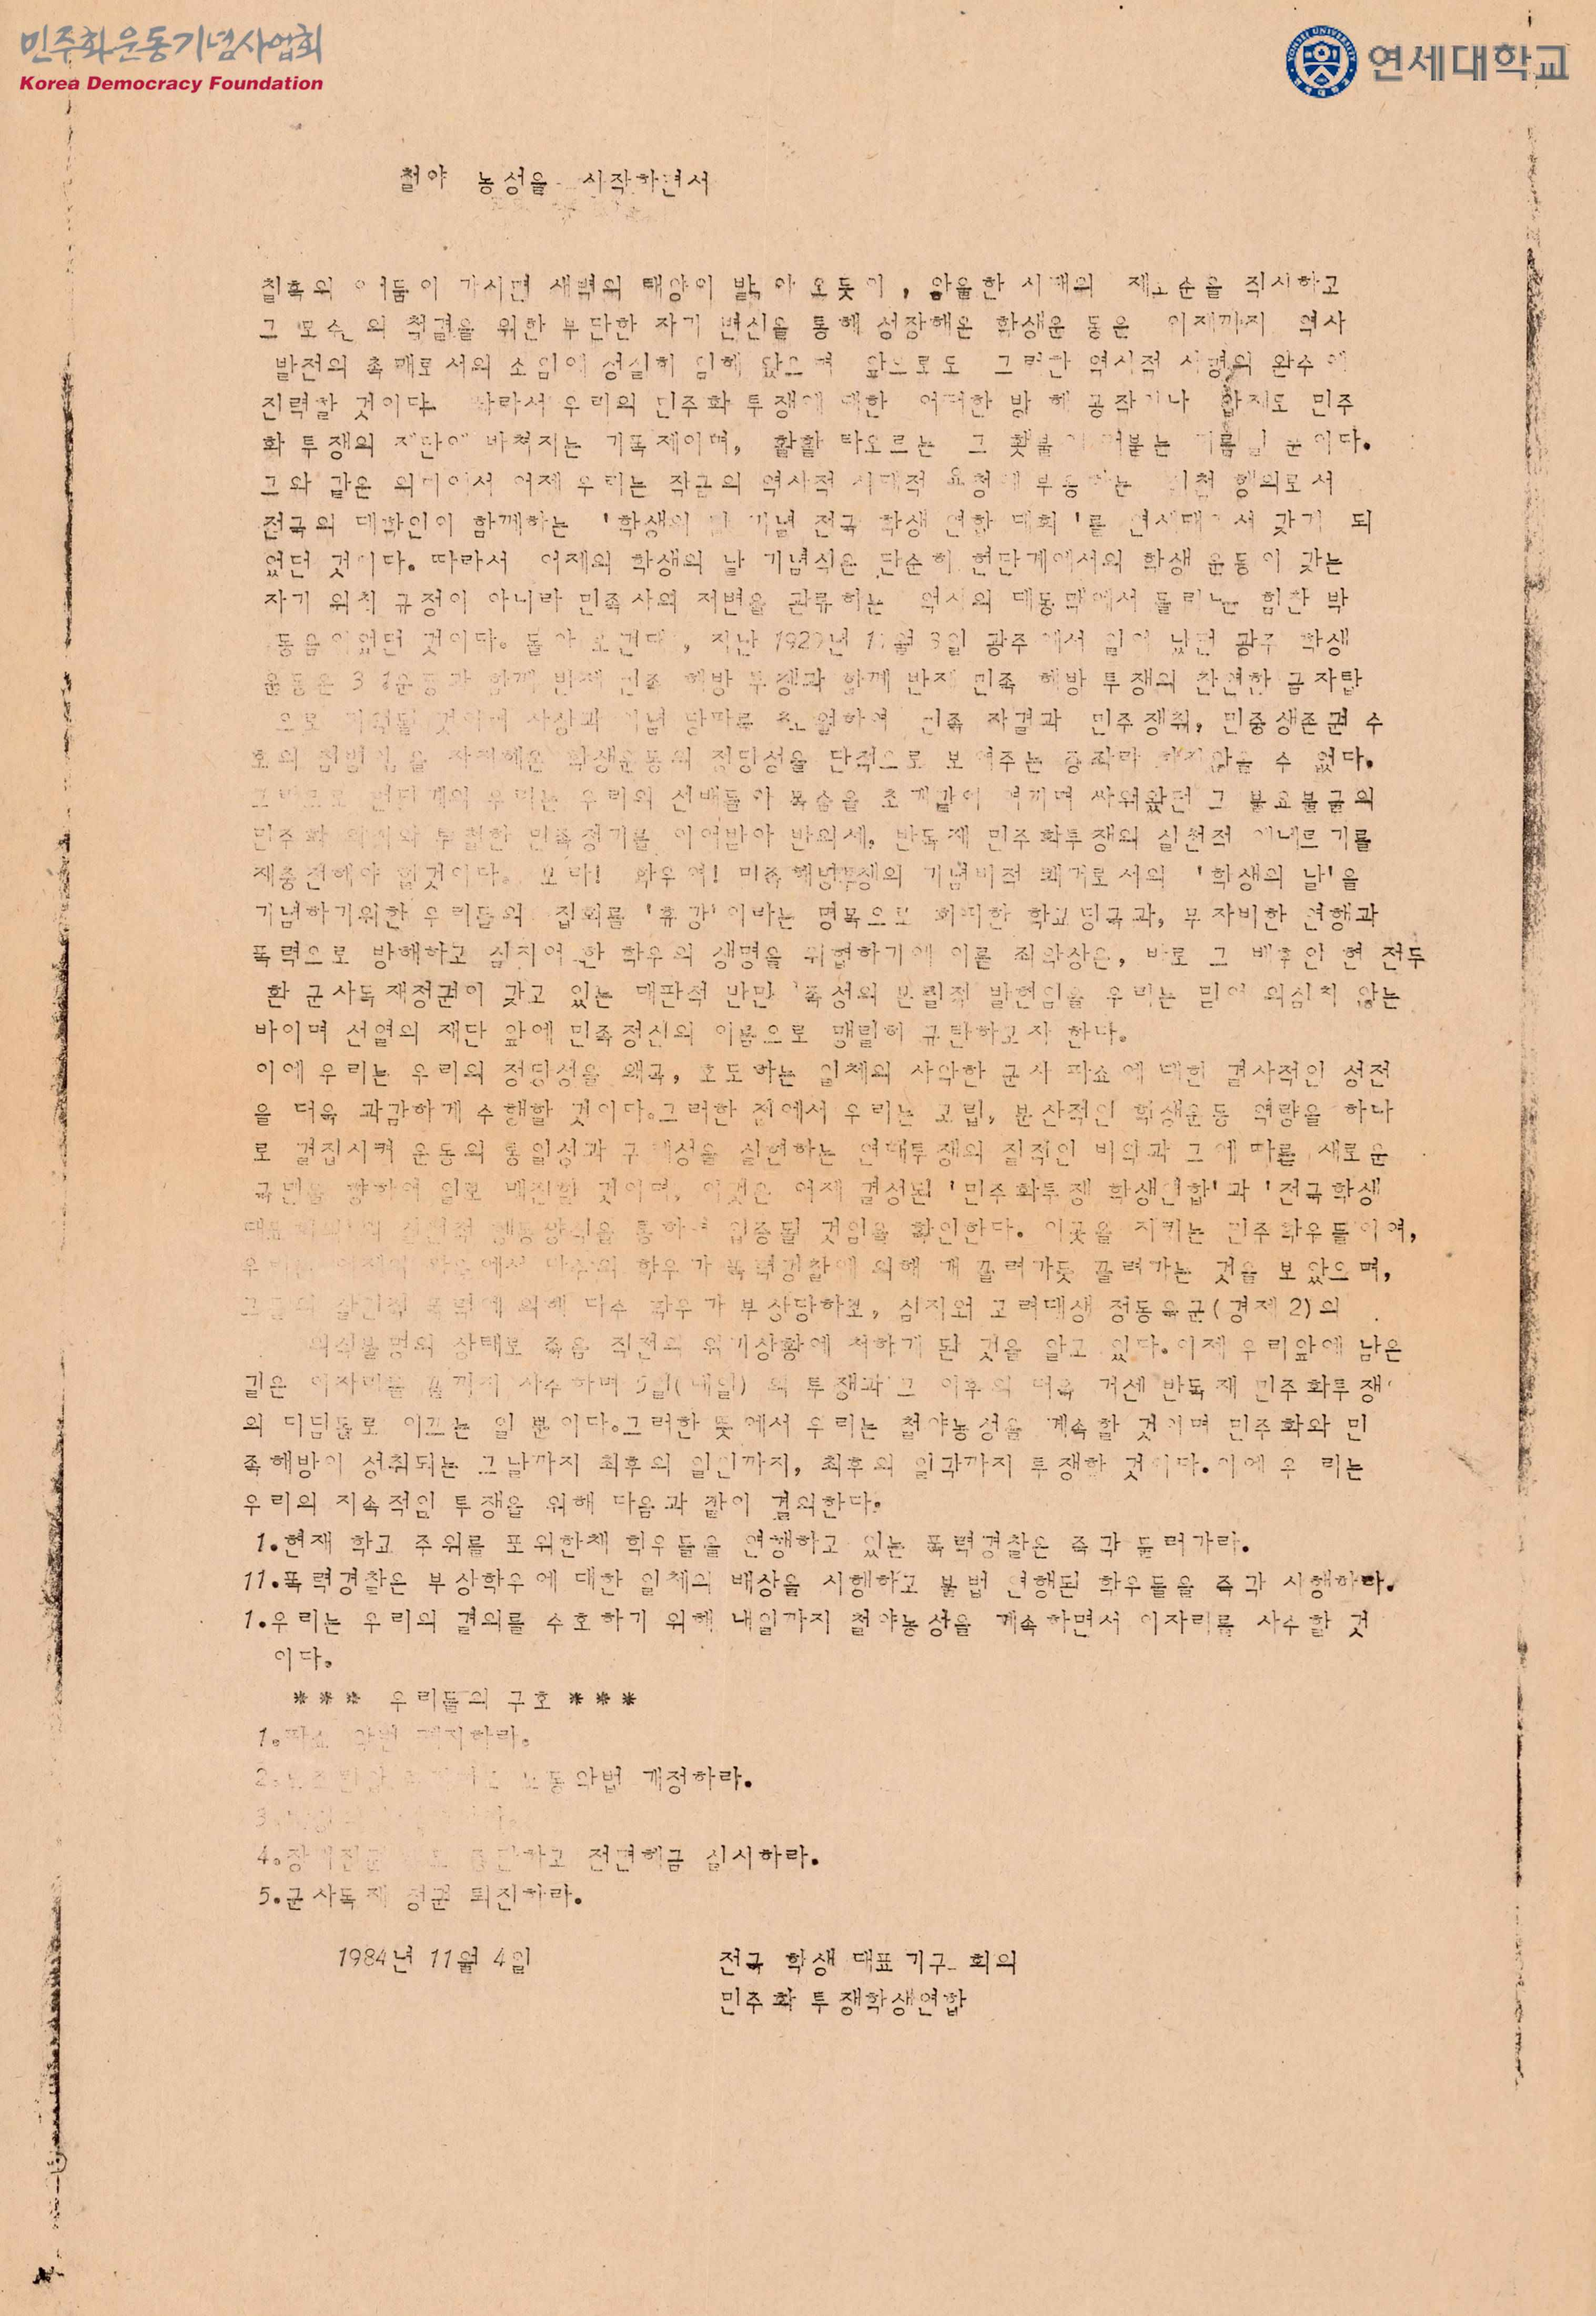 민주화운동기념사업회
Korea Democracy Foundation
연세대학교
철야 농성을 시작하면서
칠흑의 어둠이 가시면 새벽의 태양이 밝아 오듯이, 암울한 시대의 제모순을 직시하고
그 모순의 척결을 위한 부단한 자기 변신을 통해 성장해온 학생운동은 이제까지 역사
발전의 촉매로서의 소임에 성실히 임해 왔으며 앞으로도 그러한 역사적 사명의 완수에
진력할 것이다. 따라서 우리의 민주화 투쟁에 대한 어떠한 방해 공작이나 압제도 민주
화 투쟁의 제단에 바쳐지는 기폭제이며, 활활 타오르는 그 횃불에 퍼붓는 기름일 뿐이다.
그와 같은 의미에서 어제 우리는 작금의 역사적 시대적 요청에 부응하는 실천 행의로서
전국의 대학인이 함께하는 '학생의 날 기념 전국 학생 연합 대회'를 연세대에서 갖게 되
었던 것이다. 따라서 어제의 학생의 날 기념식은 단순히 현단계에서의 학생 운동이 갖는
자기 위치 규정이 아니라 민족사의 저변을 관류하는 역사의 대동맥에서 들리는 힘찬 박
동음이었던 것이다. 돌아 보건대, 지난 1929년 11월 3일 광주에서 일어 났던 광주 학생
운동은 3 1운동과 함께 반제 민족 해방 투쟁과 함께 반제 민족 해방 투쟁의 찬연한 금자탑
으로 기억될 것이며 사상과 이념 당파를 초월하여 민족 자결과 민주쟁취, 민중생존권 수
호의 을 자처해온 학생운동의 정당성을 단적으로 보여주는 증좌라 하지않을 수 없다.
그러므로 현단계의 우리는 우리의 선배들이 목숨을 초개같이 여기며 싸워왔던 그 불요불굴의
민주화 의지와 투철한 민족정기를 이어받아 반외세, 반독재 민주화투쟁의 실천적 에네르기를
재충전해야 할것이다. 보라! 학우여! 민족해방투쟁의 기념비적 쾌거로서의 '학생의 날'을
기념하기위한 우리들의 집회를 '휴강'이라는 명목으로 회피한 학교당국과, 무자비한 연행과
폭력으로 방해하고 심지어 한 학우의 생명을 위협하기에 이른 죄악상은, 바로 그 배후인 현 전두
환 군사독재정권이 갖고 있는 매판적 반민족성의 본질적 발현임을 우리는 믿어 의심치 않는
바이며 선열의 재단 앞에 민족정신의 이름으로 맹렬히 규탄하고자 한다.
이에 우리는 우리의 정당성을 왜곡, 호도하는 일체의 사악한 군사 파쇼에 대한 결사적인 성전
을 더욱 과감하게 수행할 것이다.그러한 점에서 우리는 고립, 분산적인 학생운동 역량을 하나
로 결집시켜 운동의 통일성과 구체성을 실현하는 연대투쟁의 질적인 비약과 그에 따른 새로운
국면을 향하여 일보 매진할 것이며, 이것은 어제 결성된 '민주화투쟁 학생연합'과 '전국학생
대표 실천적 행동양식을 통하여 입증될 것임을 확인한다. 이곳을 지키는 민주학우들이여,
우리는 다수의 학우가 폭력경찰에 의해 개 끌려가듯 끌려가는 것을 보았으며,
그들의 살인적 폭력에 의해 다수 학우가 부상당하고, 심지와 고려대생 정동욱군(경제2)의
의식불명의 상태로 죽음 직전의 위기상황에 처하게 된 것을 알고 있다.이제 우리앞에 남은
길은 이자리를 끝까지 사수하며 5일(내일)의 투쟁과 그 이후의 더욱 거센 반독재 민주화투쟁
의 디딤돌로 이끄는 일 뿐이다.그러한 뜻에서 우리는 철야농성을 계속할 것이며 민주화와 민
족해방이 성취되는 그날까지 최후의 일인까지, 최후의 일각까지 투쟁할 것이다.이에 우 리는
우리의 지속적인 투쟁을 위해 다음과 같이 결의한다.
1.현재 학교 주위를 포위한채 학우들을 연행하고 있는 폭력경찰은 즉각 물러가라.
11.폭력경찰은 부상학우에 대한 일체의 배상을 시행하고 불법 연행된 학우들을 즉각 시행하라.
1.우리는 우리의 결의를 수호하기 위해 내일까지 철야농성을 계속하면서 이자리를 사수할 것
이다.
*** 우리들의 구호 ***
1.파쇼 악법 폐지하라.
2. 노동악법 개정하라.
3.
4. 중단하고 전면해금 실시하라.
5.군사독재 정권 퇴진하라.
1984년 11월 4일
전국 학생 대표 기구 회의
민주화 투쟁학생연합